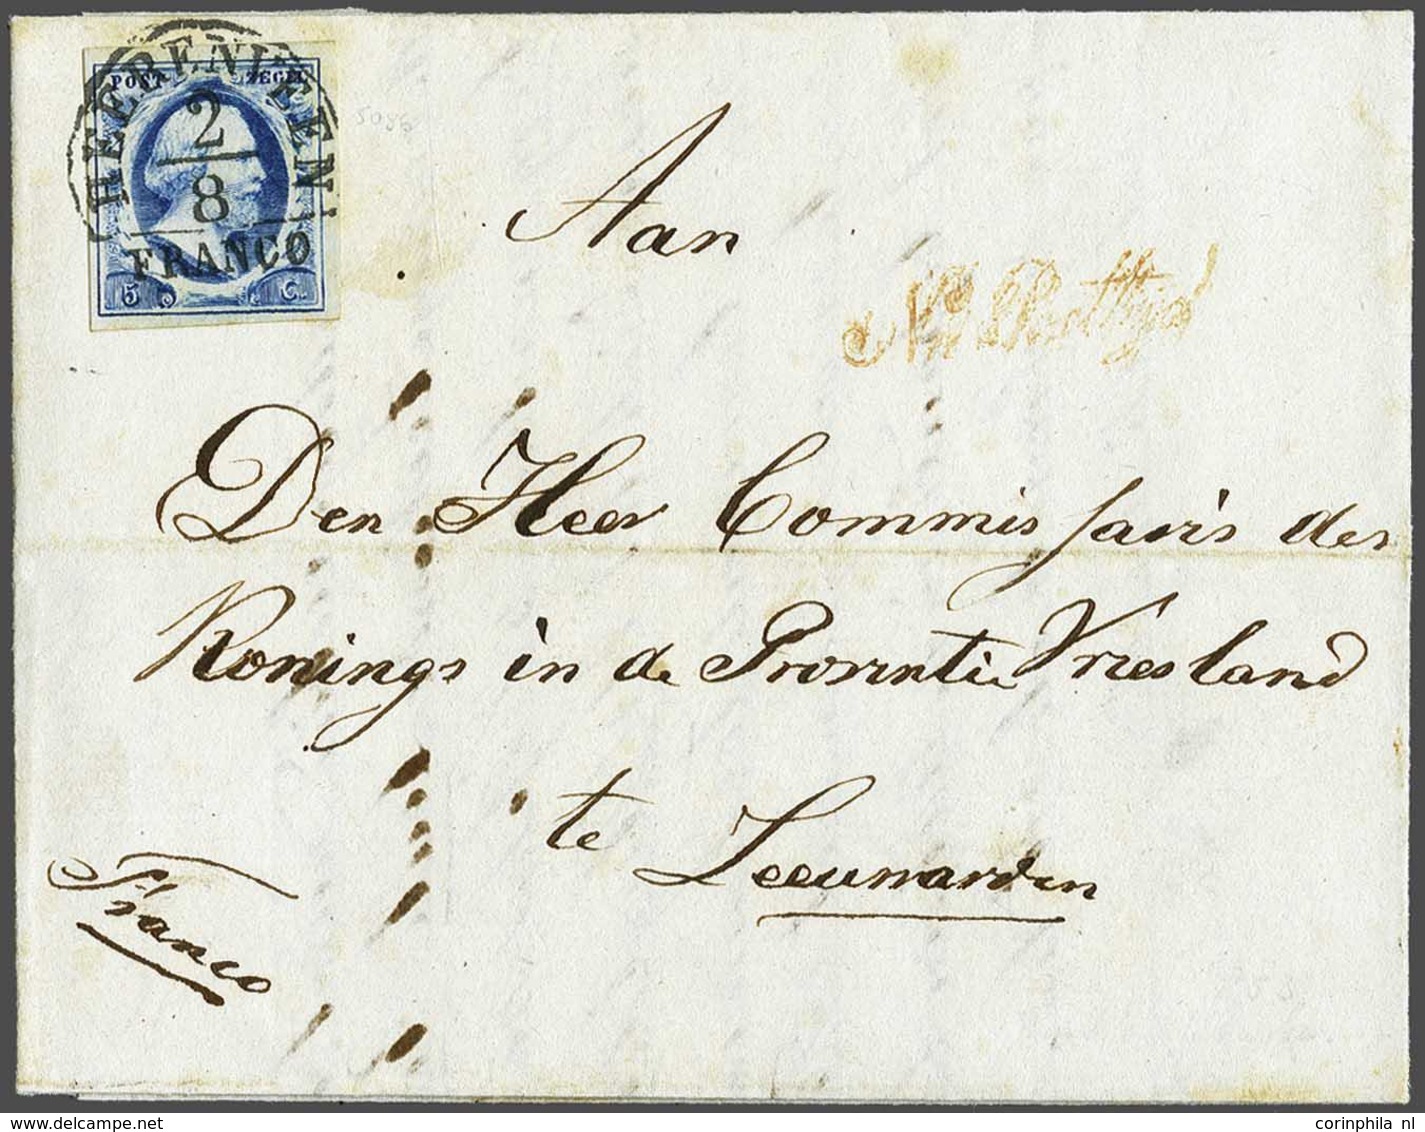 HEERENVEEN
POST ZEGEL
2
8
FRANCO
5 C.
5036
Aan
Na Posttijd
Den Heer Commissaris des
Konings in de Provintie Vriesland
te Leeuwarden
Franco
corinphila nl